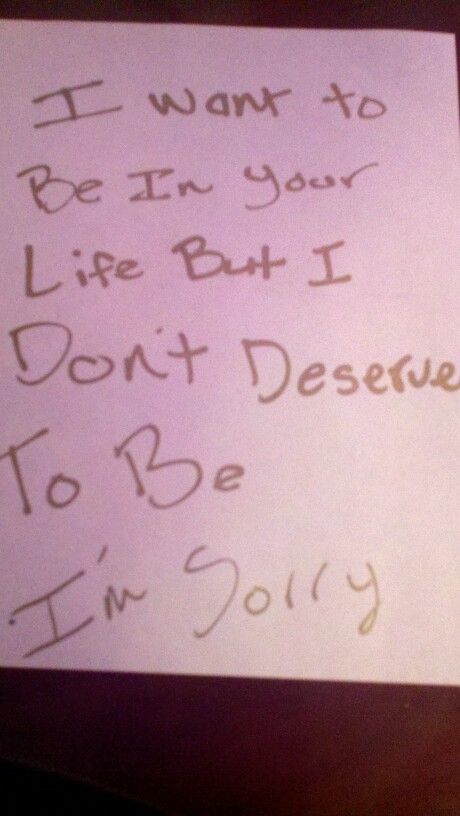 I want to
Be In Your
Life But I
Don't Deserve
To Be
I'm Sorry